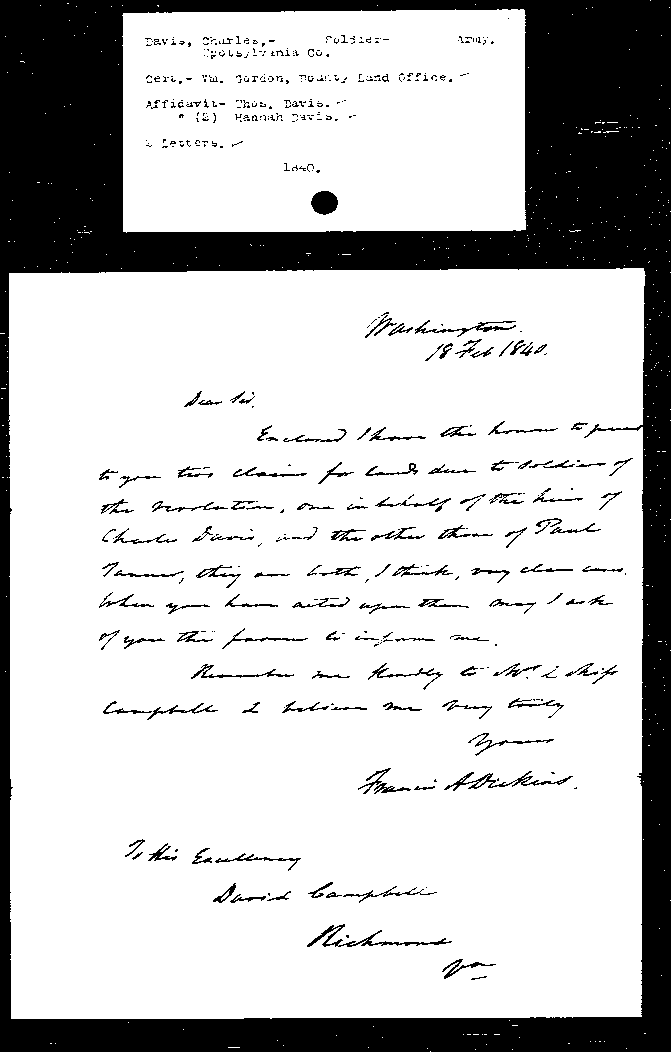 Davis, Charles,- Soldier- Army.
Spotsylvania Co.
Cert.- Wm. Gordon, Bounty Land Office. ✓
Affidavit- Thos. Davis. ✓
" (2) Hannah Davis. ✓
2 Letters. ✓
1840.
Washington.
18 Feb 1840.
Dear Sir,
Enclosed I have the honour to
to you two claims for lands due to Soldiers of
the revolution, one in behalf of the heirs of
Charles Davis, and the other those of Paul
Tanner, they are both, I think, very clear cases.
When you have acted upon them may I ask
of you the favour to inform me.
Remember me kindly to Mrs. & Miss
Campbell & believe me very truly
Yours
Francis A Dickins.
To His Excellency
David Campbell
Richmond
Va